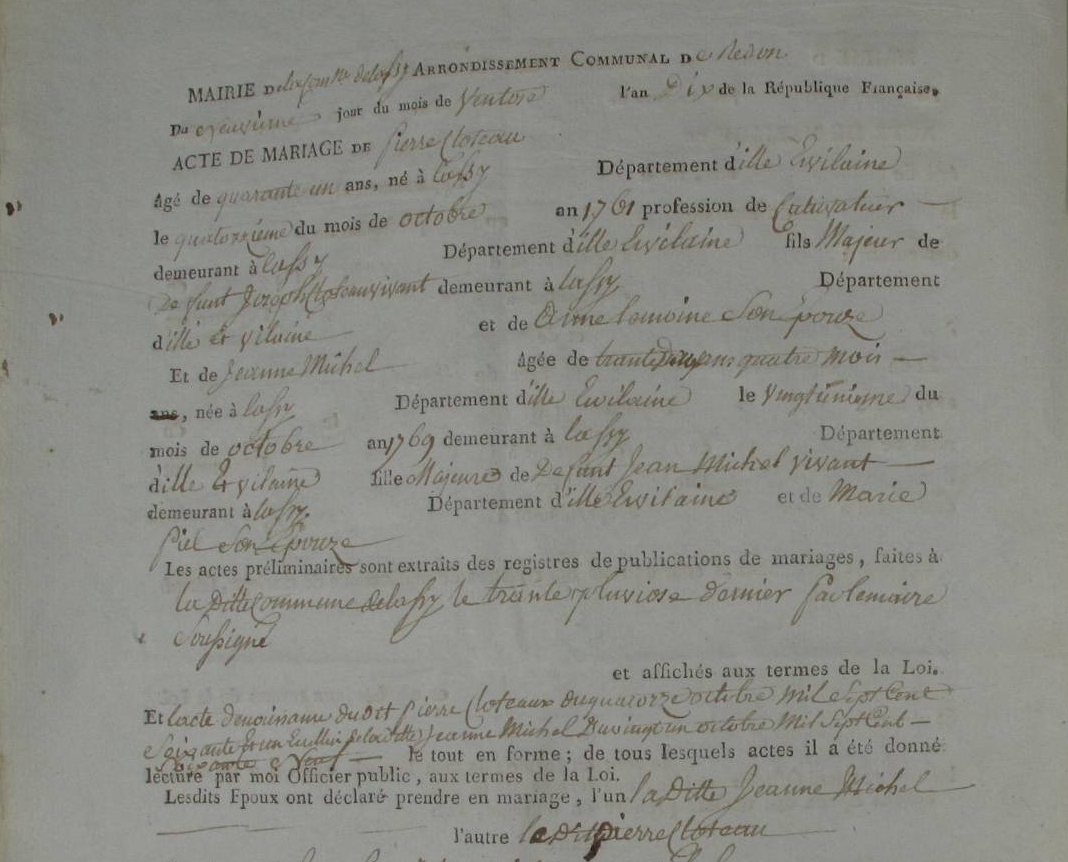 MAIRIE De la Comne de lassy ARRONDISSEMENT COMMUNAL De Redon
Du neuvieme jour du mois de Ventose l'an Dix de la République Française.
ACTE DE MARIAGE DE pierre Cloteau
âgé de quarante un ans, né à lassy Département d'ille Evilaine
le quatorzieme du mois de octobre an 1761 profession de Cultivateur
demeurant à lassy Département d'ille Evilaine fils Majeur de
De funt Joseph Cloteau vivant demeurant à lassy Département
d'ille Et vilaine et de Anne lemoine Son Epouze
Et de Jeanne Michel âgée de trante Deux ans quatre mois
ans, née à lassy Département d'ille Evilaine le vingt unieme du
mois de octobre an 1769 demeurant à lassy Département
d'ille Et vilaine fille Majeure de Defunt Jean Michel vivant
demeurant à lassy. Département d'ille Evilaine et de Marie
piel Son Epouze
Les actes préliminaires sont extraits des registres de publications de mariages, faites à
la Ditte Commune de lassy le trante pluviose dernier par le maire
Soussigné
et affichés aux termes de la Loi.
Et lacte de naissance du Dit pierre Cloteaux du quatorze octobre mil Sept Cent
Soixante Et un Et celui de la ditte Jeanne Michel Du vingt un octobre Mil Sept Cent
Soixante Neuf le tout en forme ; de tous lesquels actes il a été donné
lecture par moi Officier public, aux termes de la Loi.
Lesdits Epoux ont déclaré prendre en mariage, l'un la Ditte Jeanne Michel
l'autre le Dit pierre Cloteau